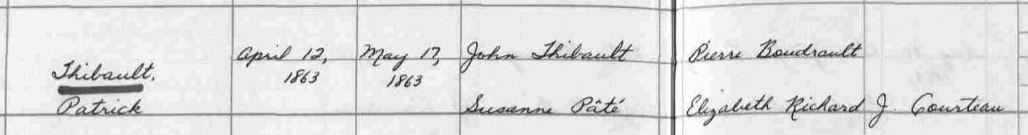 April 12, May 17, John Thibault Pierre Boudrault
Thibault, 1863 1863
Patrick Susanne Pâté Elizabeth Richard J. Courteau